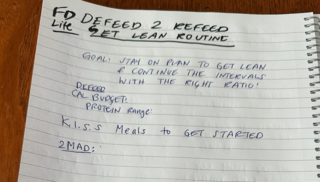 FD DEFEED 2 REFEED
Life GET LEAN ROUTINE
GOAL: STAY ON PLAN TO GET LEAN
& CONTINUE THE INTERVALS
WITH THE RIGHT RATIO!
DEFEED
CAL BUDGET:
PROTEIN Range:
K.I.S.S Meals to GET STARTED
2MAD: